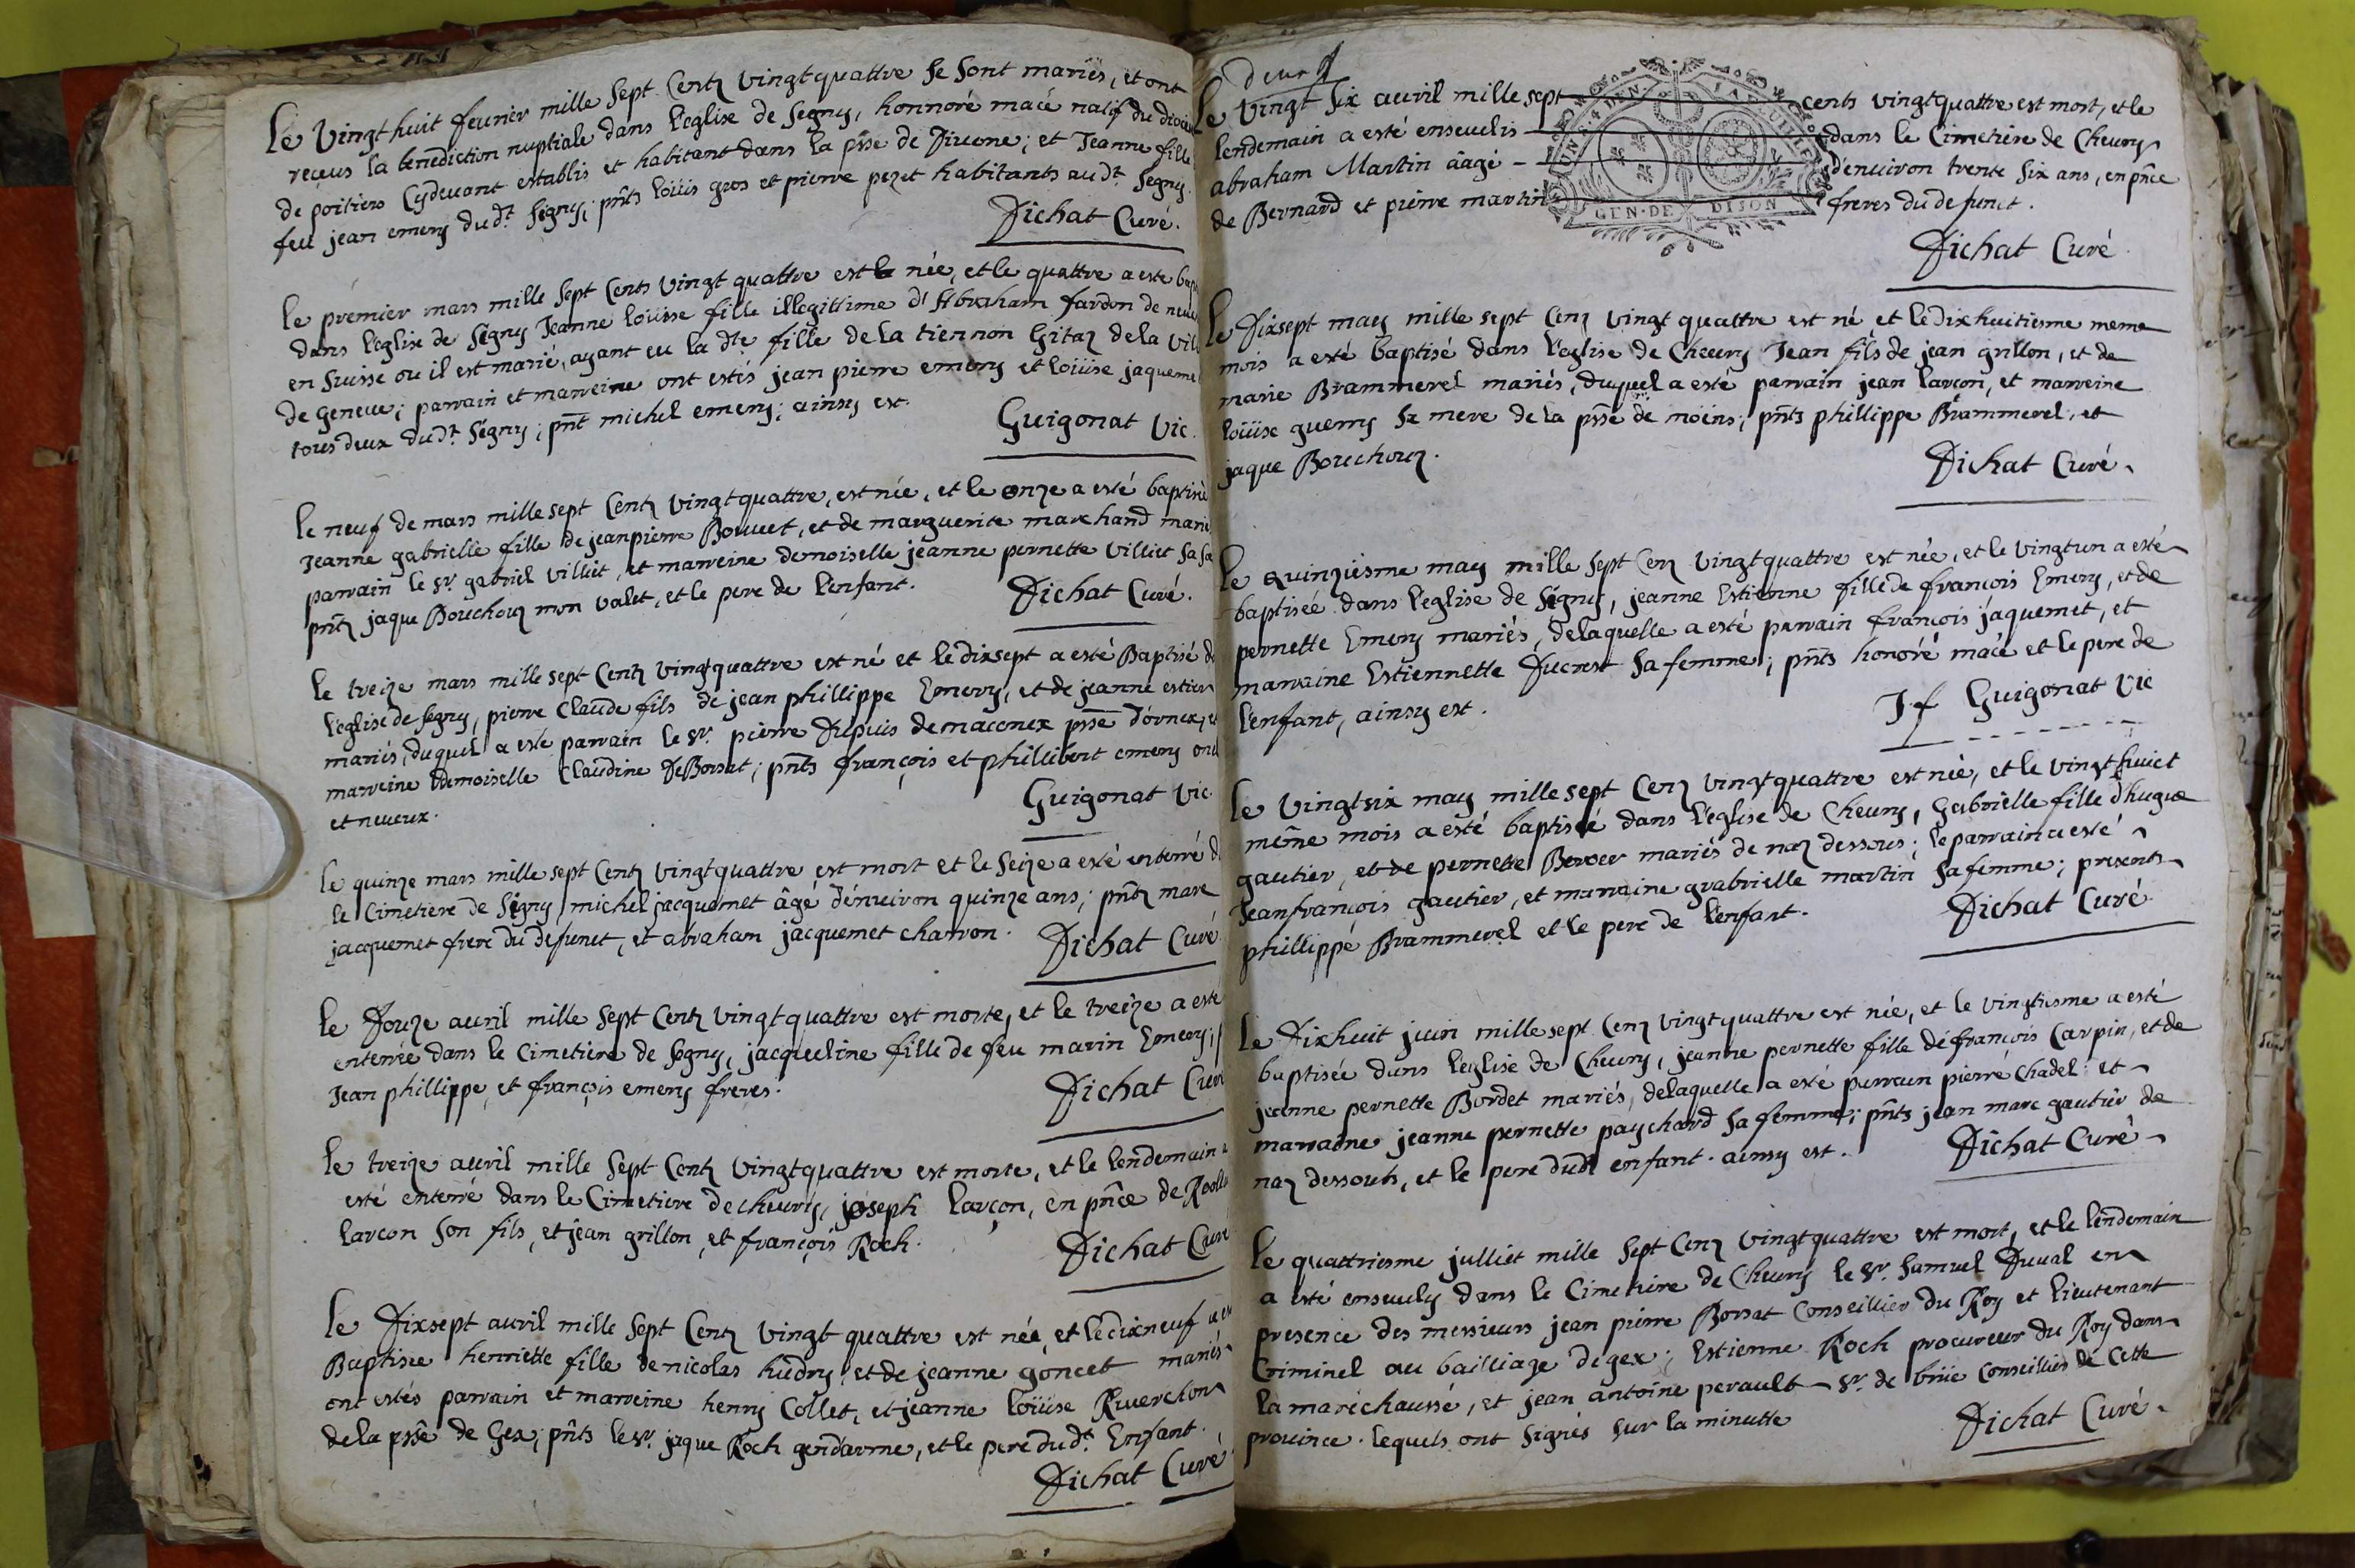 Le vingt huit feuvrier mille sept Centz vingtquattre se sont mariés, et ont
reçeus la benediction nuptiale dans l'eglise de segny, honnoré macé natif du
de poitiers Cydeuant establis et habitant dans la psse de Diuone; et Jeanne fille
feu jean emery dudt. segny; pnts loüis gros et pierre pezet habitants audt. segny.
Dichat Curé.
le premier mars mille sept Cents vingt quattre est née, et le quattre a esté
dans l'eglise de segny Jeanne loüise fille illegittime d'Abraham fardon de
en suisse ou il est marié, ayant eu la dte fille de la tiennon Gitaz de la
de geneue; parrain et marreine ont estés jean pierre emery et loüise
tous deux dudt. segny; pnt michel emery; ainsy est.
Guigonat vic.
le neuf de mars mille sept Centz vingtquattre, est née, et le onze a esté baptisé
Jeanne gabrielle fille de jeanpierre Bouuet, et de marguerite marchand
parrain le sr. gabriel villiet, et marreine demoiselle jeanne pernette villiet sa
pntz jaque Bouchouz mon valet, et le pere de l'enfant.
Dichat Curé.
le treize mars mille sept Centz vingtquattre est né et le dixsept a esté Baptisé
l'eglise de segny, pierre Claude fils de jean phillippe Emery, et de jeanne
mariés, duquel a esté parrain le sr. pierre Dupuis de maconex psse d'ornex,
marreine demoiselle Claudine DeBorsat; pnts françois et phillibert emery
et neueux.
Guigonat vic.
le quinze mars mille sept Centz vingtquattre est mort et le seize a esté enterré
le Cimetiere de segny michel jacquemet âgé d'enuiron quinze ans; pntz marc
jacquemet frere du defunct, et abraham jacquemet charron.
Dichat Curé.
le Douze auril mille sept Centz vingtquattre est morte, et le treize a esté
enterrée dans le Cimetiere de segny, jacqueline fille de feu marin Emery;
Jean phillippe, et françois emery freres.
Dichat Curé
le treize auril mille sept Centz vingtquattre est morte, et le lendemain
esté enterré dans le Cimetiere de cheury, joseph larçon, en pnce de
larçon son fils, et jean grillon, et françois Roch.
Dichat Curé
le Dixsept auril mille sept Centz vingt quattre est née, et le dixneuf
Baptisée henriette fille de nicolas hudry, et de jeanne goncet mariés
ont estés parrain et marreine henry Collet, et jeanne loüise Ruerchon
de la psse de Gex; pnts le sr. jaque Roch gendarme, et le pere dudt. Enfant.
Dichat Curé
deux
le vingt six auril mille sept cents vingtquattre est mort, et le
lendemain a esté enseuelis dans le Cimetiere de Cheury
abraham Martin âagé d'enuiron trente six ans, en pnce
de Bernard et pierre martin freres du defunct.
GEN·DE DIJON
Dichat Curé.
le Dixsept may mille sept Cenz vingt quattre est né et le dixhuitiesme meme
mois a esté baptisé dans l'eglise de Cheury Jean fils de jean grillon, et de
marie Brammerel mariés, duquel a esté parrain jean larçon, et marreine
loüise guerry sa mere de la psse de moëns; pnts phillippe Brammerel, et
jaque Bouchouz.
Dichat Curé.
le quinziesme may mille sept Cenz vingtquattre est née, et le vingtun a esté
baptisée dans l'eglise de segny, jeanne Estienne fille de francois Emery, et de
pernette Emery mariés, delaquelle a esté parrain françois jaquemet, et
marraine Estiennette Ducrest sa femme; pnts honoré macé et le pere de
l'enfant, ainsy est.
Guigonat vic
le vingtsix may mille sept Cenz vingtquattre est née, et le vingthuict
même mois a esté baptisée dans l'eglise de Cheury, Gabrielle fille d'hugue
gautier, et de pernette Berger mariés de naz dessous; le parrain a esté
Jeanfrancois gautier, et marraine grabrielle martin sa femme; presents
phillippe Brammerel et le pere de l'enfant.
Dichat Curé.
le Dixhuit juin mille sept Cenz vingtquattre est née, et le vingtiesme a esté
baptisée dans l'eglise de Cheury, jeanne pernette fille de françois Carpin, et de
jeanne pernette Bordet mariés, delaquelle a esté parrain pierre Chadel et
marraine jeanne pernette paychard sa femme; pnts jean marc gautier de
naz dessouts, et le pere dudt enfant. ainsy est.
Dichat Curé
le quattriesme julliet mille sept Cenz vingtquattre est mort, et le lendemain
a esté enseuely dans le Cimetiere de Cheury le sr. samuel Duual en
presence des messieurs jean pierre Borsat Conseillier du Roy et lieutenant
Criminel au bailliage de gex; Estienne Roch procureur du Roy dans
la marechaussé, et jean antoine perault sr. de brüe Conseillier de Cette
prouince. lequels ont signés sur la minutte
Dichat Curé.